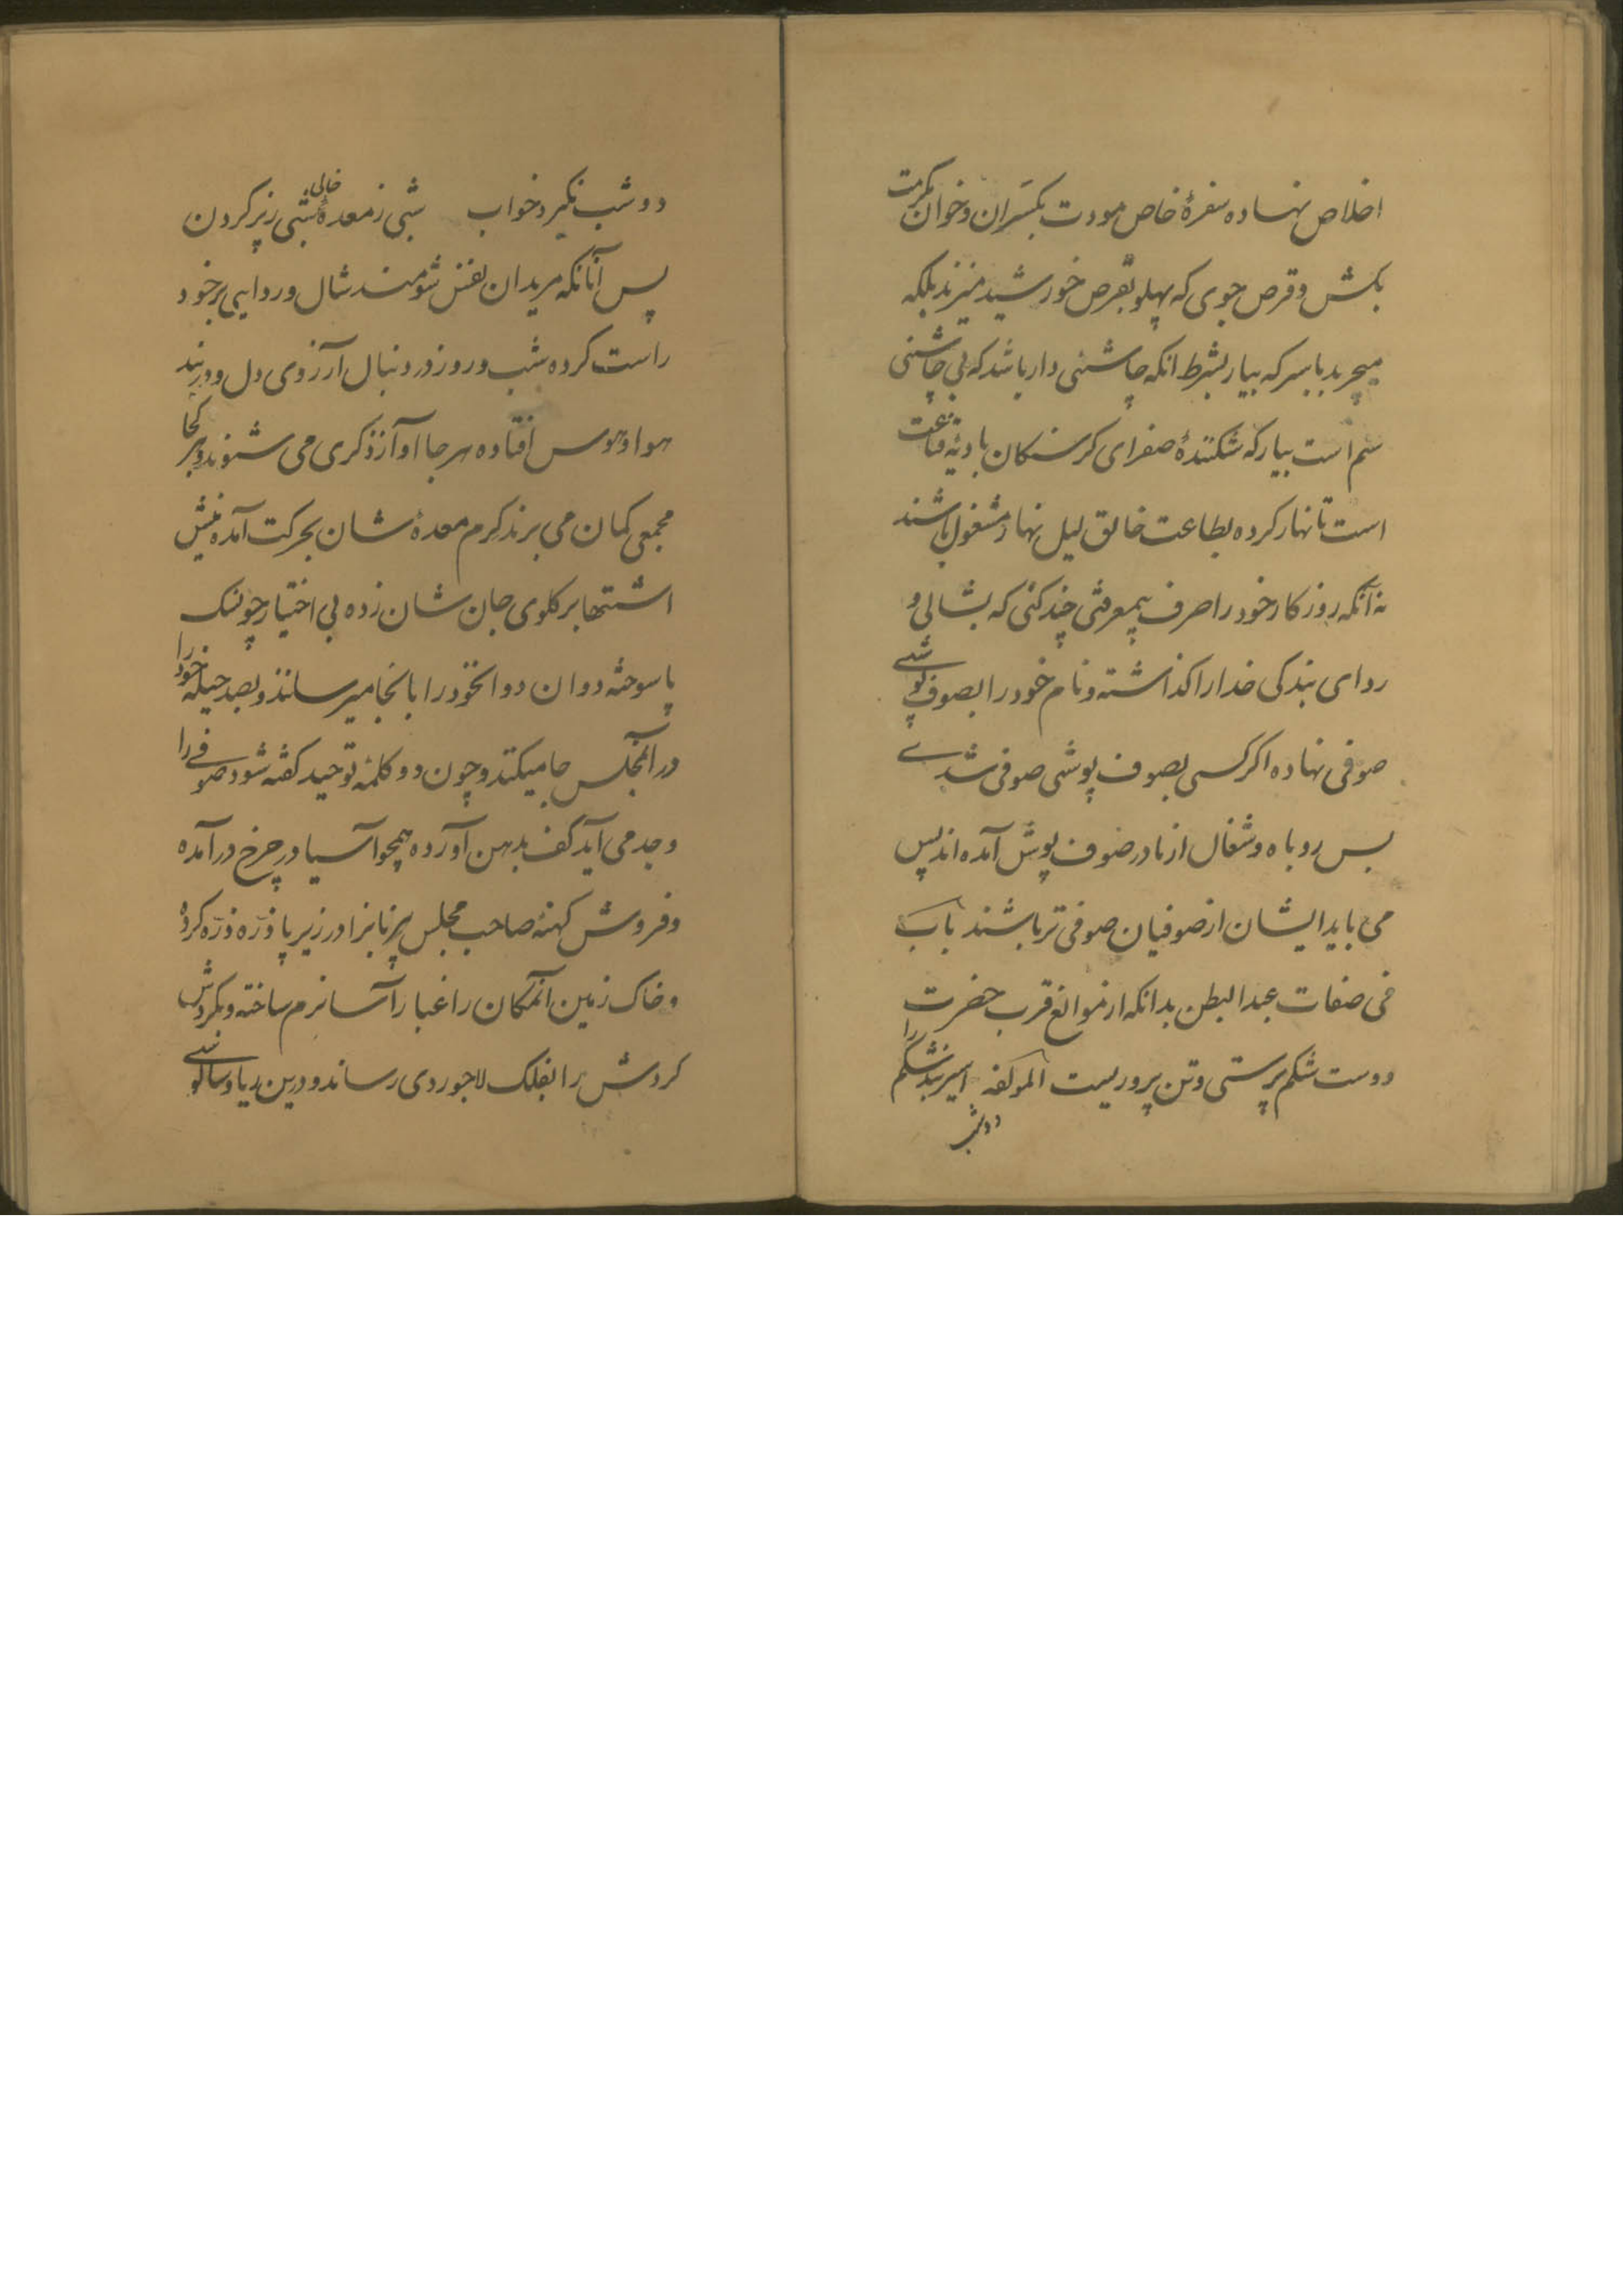 اخلاص نهاده سفرهٔ خاص مودت بکستران و خوان مکرمت
بکش و قرص جوی که پهلو بقرص خورشید میزند بلکه
میچربد با سرکه بیار بشرط انکه چاشنی دار باشد که بی چاشنی
سم است بیار که شکنندهٔ صفرای کرسنکان بادیهٔ قناعت
است تا نهار کرده بطاعت خالق لیل نهار مشغول باشند
نه آنکه روزکار خود را صرف بیمعرفتی چند کنی که بشالی و
ردای بندکی خدا را کذاشته و نام خود را بصوف پوشی
صوفی نهاده اکر کسی بصوف پوشی صوفی شدی
بس روباه و شغال از مادر صوف پوش آمده اند پس
می باید ایشان از صوفیان صوفی تر باشند باب
فی صفات عبد البطن بدانکه از موانع قرب حضرت
دوست شکم پرستی و تن پروریست المولفه اسیر بند شکم را
دو شب
دو شب نکیرد خواب شبی ز معدهٔ خالی شبی ز پر کردن
پس آنانکه مریدان نفس شومند شال و ردایی بر خود
راست کرده شب و روز در دنبال آرزوی دل و در بند
هوا و هوس افتاده هر جا آواز ذکری می شنوند و بهر کجا
مجمعی کمان می برند کرم معدهٔ شان بحرکت آمده نیش
اشتها بر کلوی جان شان زده بی اختیار چو سک
پا سوخته دوان دوان خود را بانجا میرسانند و بصد حیله خود را
در آنمجلس جا میکنند و چون دو کلمهٔ توحید کفته شود صوفی را
وجد می آید کف بدهن آورده همچو آسیا در چرخ درآمده
و فروش کهنهٔ صاحب مجلس را در زیر پا ذرّه ذرّه کرده
و خاک زمین آنمکان را غبار آسا نرم ساخته و بکردش
کردش را بفلک لاجوردی رساند و درین ریا و سالوسی